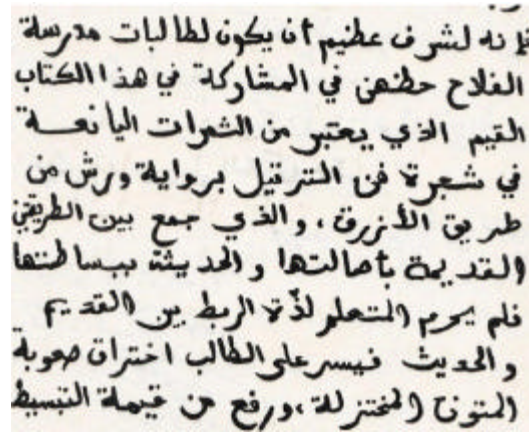 فإنه لشرف عظيم أن يكون لطالبات مدرسة
الفلاح حظهن في المشاركة في هذا الكتاب
القيم الذي يعتبر من الثمرات اليانعة
في شجرة فن الترتيل برواية ورش من
طريق الأزرق، والذي جمع بين الطريقتين
القديمة بأصالتها والحديثة ببساطتها
فلم يحرم المتعلم لذّة الربط بين القديم
والحديث فيسر على الطالب اختراق صعوبة
المتون المختزلة، ورفع من قيمة التبسيط